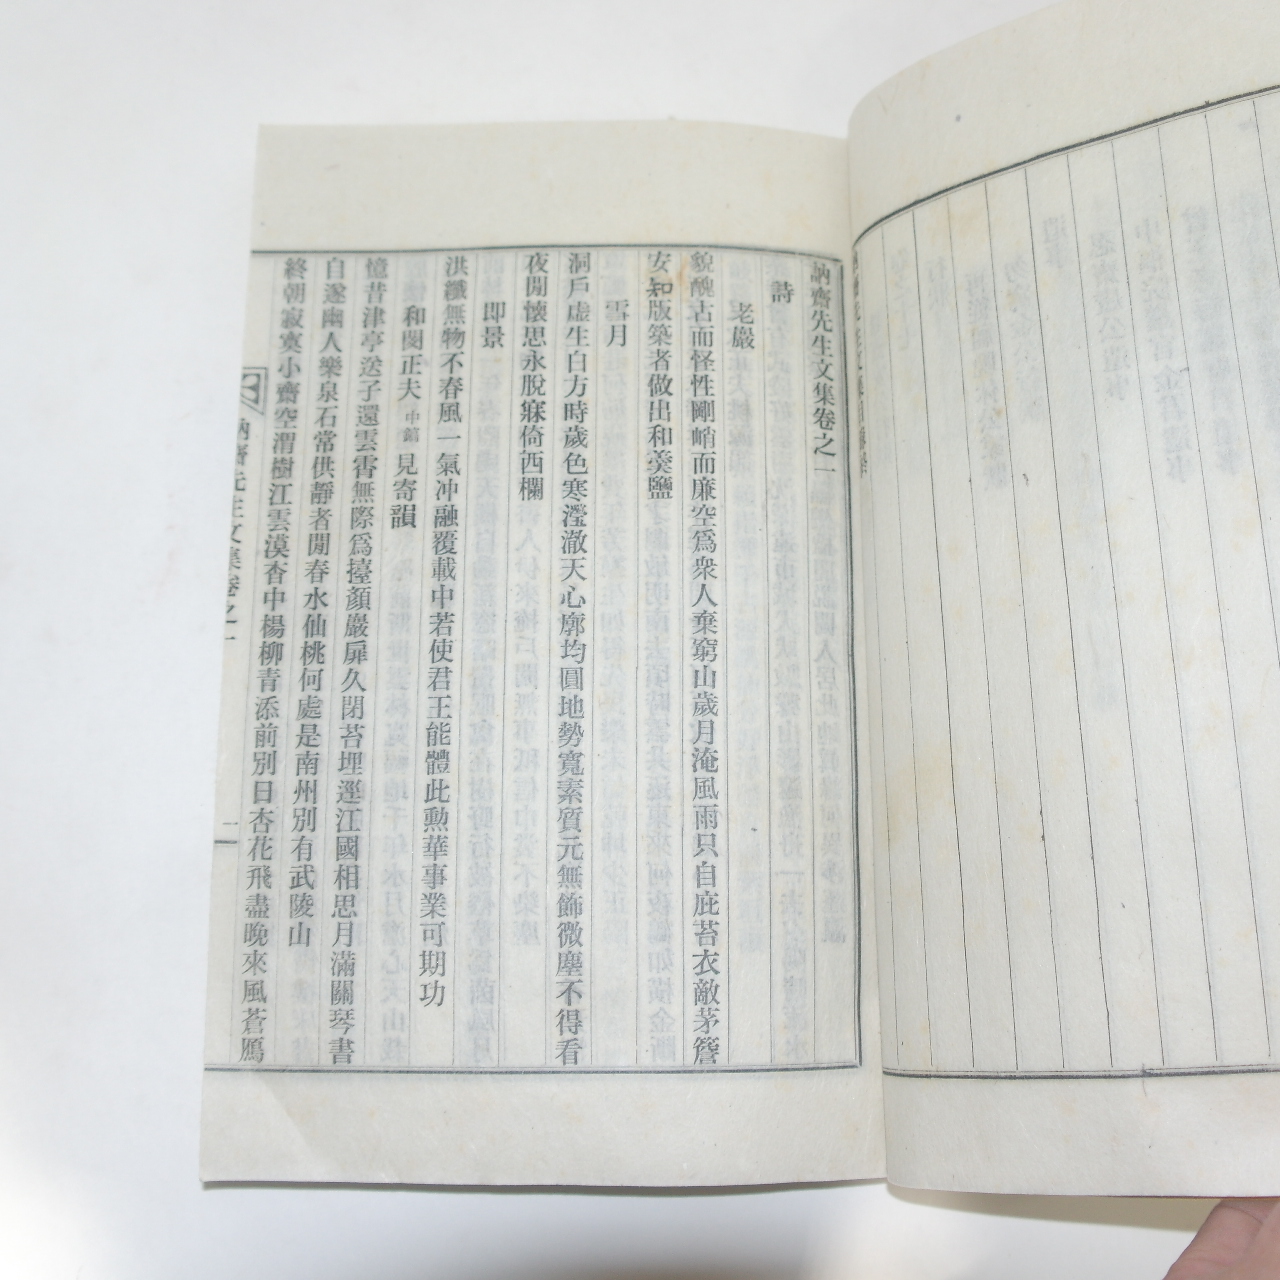 訥齋先生文集卷之一
詩
老巖
貌醜古而怪性剛峭而廉空爲衆人棄窮山歲月淹風雨只自庇苔衣敵茅簷
安知版築者做出和羹鹽
雪月
洞戶虛生白方時歲色寒瀅澈天心廓均圓地勢寬素質元無飾微塵不得看
夜閒懷思永脫寐倚西欄
即景
洪纖無物不春風一氣冲融覆載中若使君王能體此勳華事業可期功
和閔正夫中䭲見寄韻
憶昔津亭送子還雲霄無際爲擡顔巖扉久閉苔埋逕江國相思月滿關琴書
自遂幽人樂泉石常供靜者閒春水仙桃何處是南州別有武陵山
終朝寂寞小齋空渭樹江雲漠杳中楊柳靑添前別日杏花飛盡晚來風蒼鴈
訥齋先生文集卷之一
一